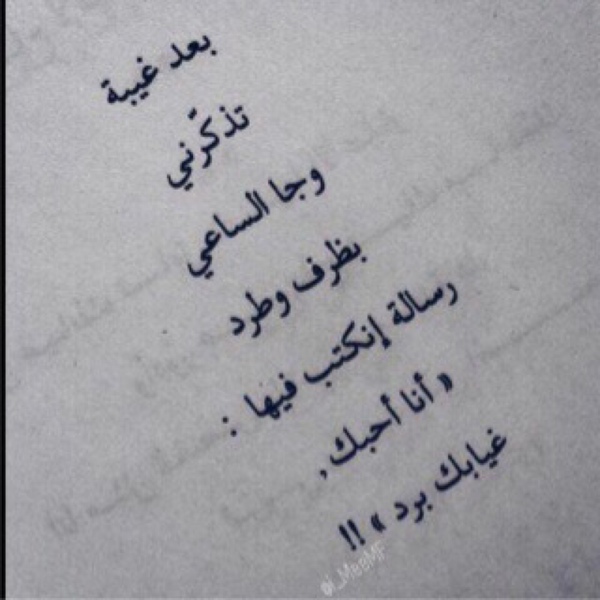 بعد غيبة
تذكّرني
وجا الساعي
بظرف وطرد
رسالة إنكتب فيها :
« أنا أحبك ,
غيابك برد » !!